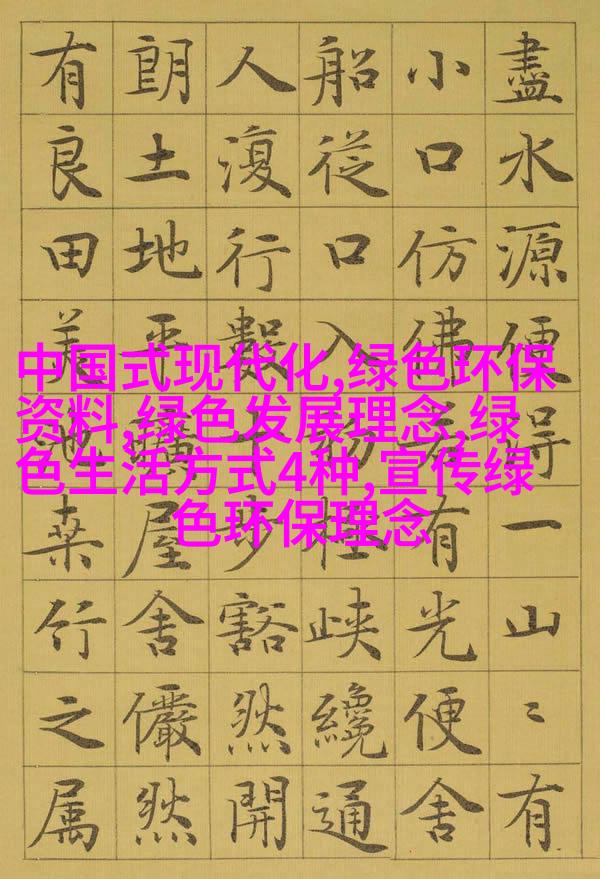 中国式现代化,绿色环保
资料,绿色发展理念,绿
色生活方式4种,宣传绿
色环保理念
盡水源便得一山〻有
小口仿佛若有光便舍
船從口入初極峽纔通
人復行數十步豁然開
朗土地平曠屋舍儼然
有良田美池桑竹之属